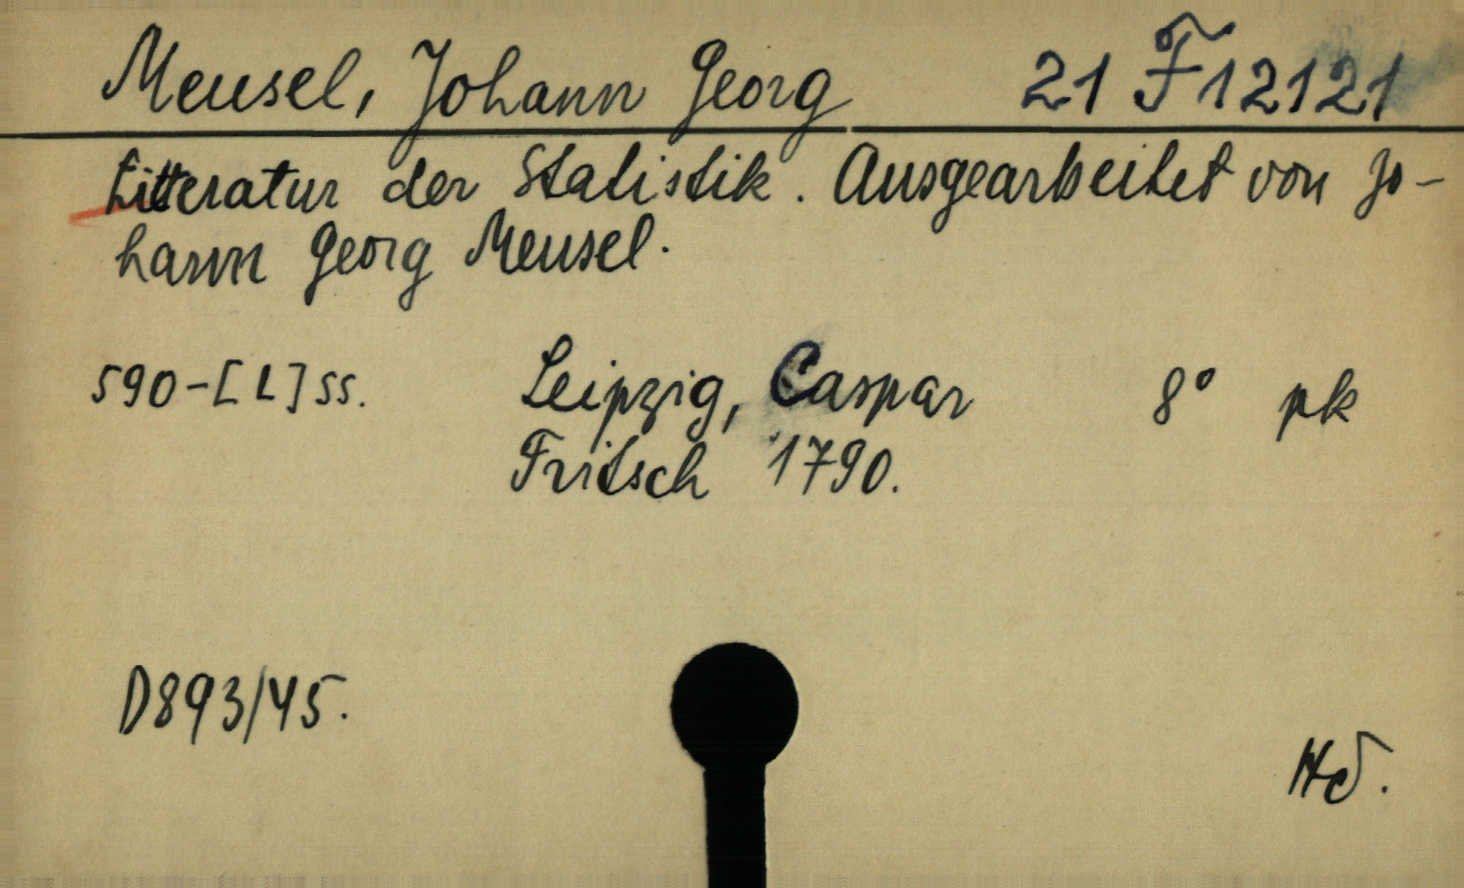 Meusel, Johann Georg 21 F 12121
Litteratur der Statistik. Ausgearbeitet von Jo-
hann Georg Meusel.
590-[L] SS. Leipzig, Caspar 8° pk
Fritsch 1790.
D893/45.